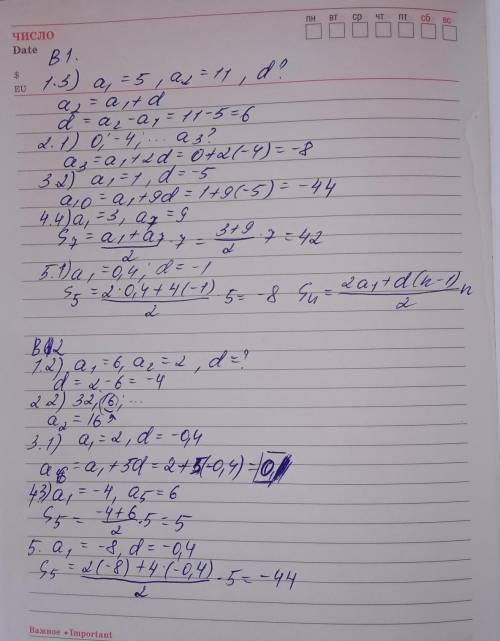 пн вт ср чт пт сб вс
ЧИСЛО
Date
$
EU
В1.
1.3) a₁ = 5, a₂ = 11, d?
a₂ = a₁ + d
d = a₂ - a₁ = 11 - 5 = 6
2.1) 0; -4; ... a₃?
a₃ = a₁ + 2d = 0 + 2(-4) = -8
3.2) a₁ = 1, d = -5
a₁₀ = a₁ + 9d = 1 + 9(-5) = -44
4.4) a₁ = 3, a₇ = 9
S₇ = (a₁ + a₇)/2 · 7 = (3 + 9)/2 · 7 = 42
5.1) a₁ = 0,4; d = -1
S₅ = (2·0,4 + 4(-1))/2 · 5 = -8 Sₙ = (2a₁ + d(n-1))/2 n
В2
1.2) a₁ = 6, a₂ = 2, d = ?
d = 2 - 6 = -4
2.2) 32, 16; ...
a₂ = 16
3.1) a₁ = 2, d = -0,4
a₆ = a₁ + 5d = 2 + 5(-0,4) = 0
4.3) a₁ = -4, a₅ = 6
S₅ = (-4 + 6)/2 · 5 = 5
5. a₁ = -8, d = -0,4
S₅ = (2(-8) + 4·(-0,4))/2 · 5 = -44
Важное • Important